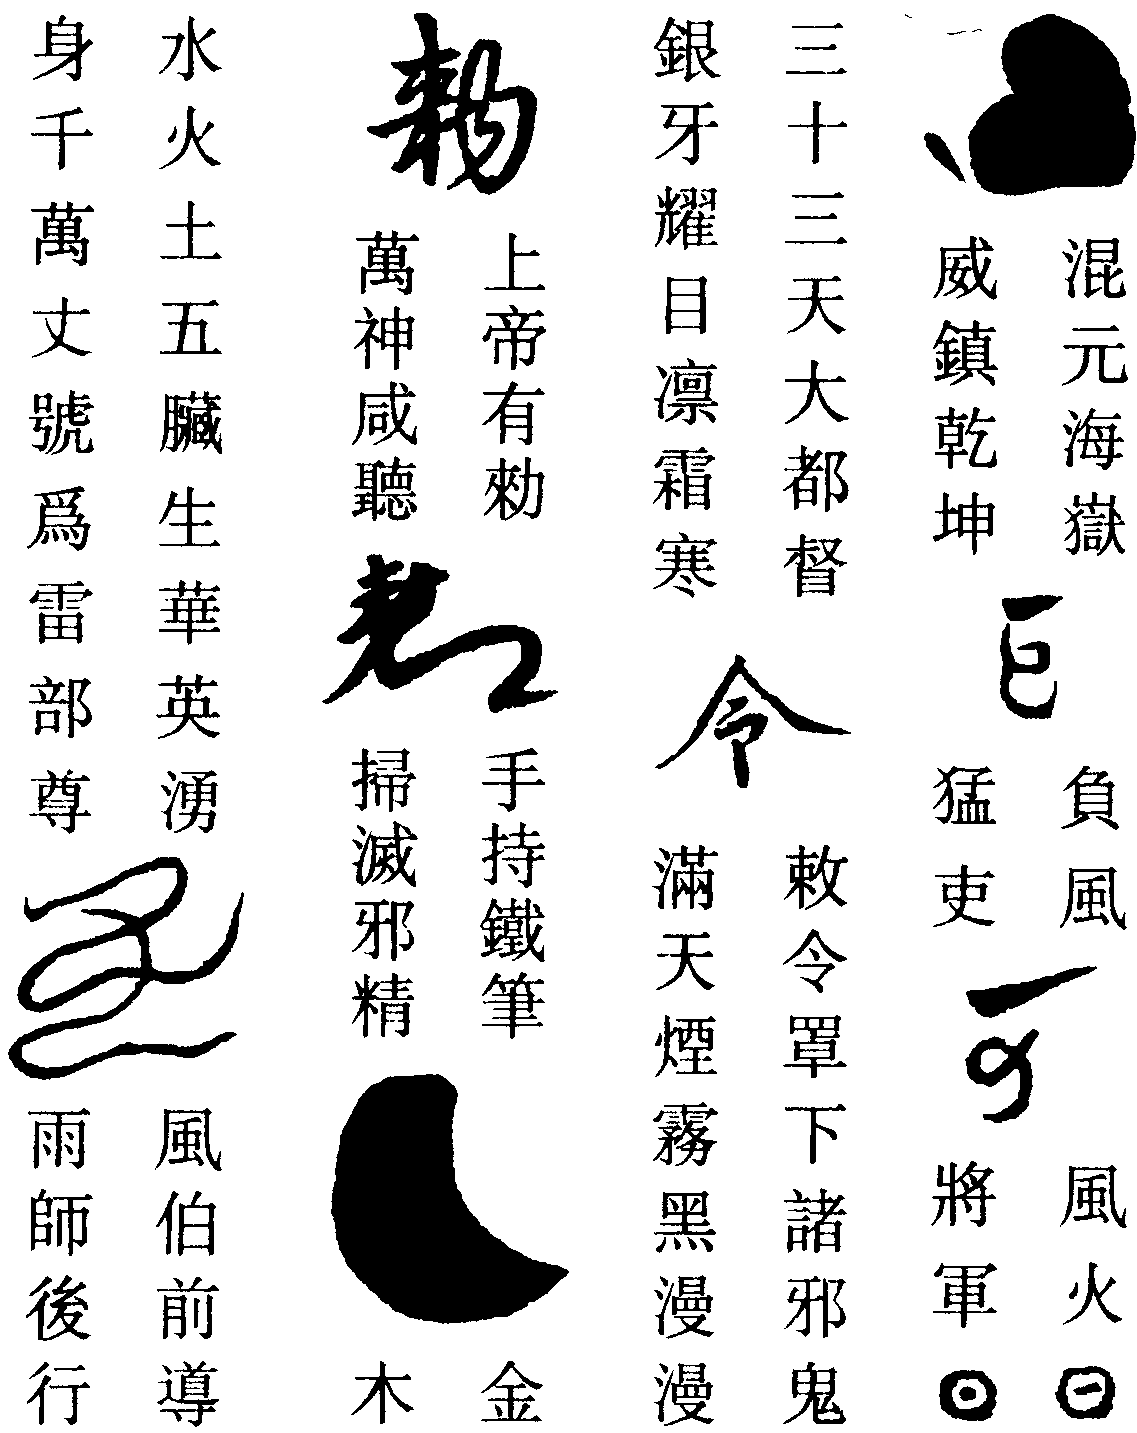 混元海嶽
威鎮乾坤
負風
猛吏
風火
將軍
三十三天大都督
銀牙耀目凛霜寒
令
敕令罩下諸邪鬼
滿天煙霧黑漫漫
勑
上帝有勑
萬神咸聽
手持鐵筆
掃滅邪精
金
木
水火土五臟生華英湧
身千萬丈號爲雷部尊
風伯前導
雨師後行